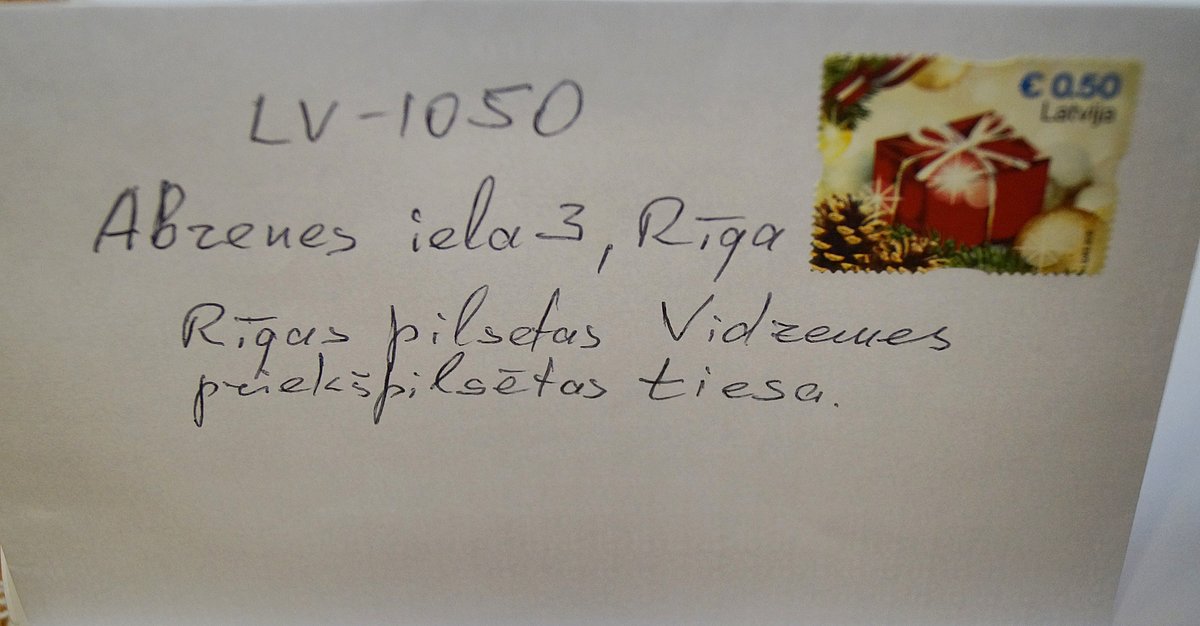 € 0.50
Latvija
LV-1050
Abrenes iela 3, Rīga
Rīgas pilsētas Vidzemes
priekšpilsētas tiesa.